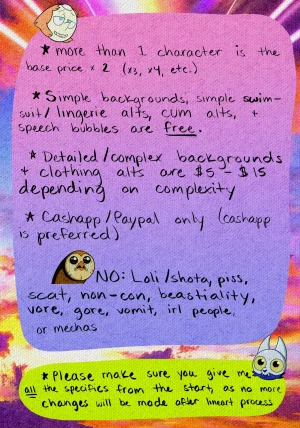 ★ more than 1 character is the
base price × 2 (x3, x4, etc.)
★ Simple backgrounds, simple swim-
suit/lingerie alts, cum alts, +
speech bubbles are free.
★ Detailed/complex backgrounds
+ clothing alts are $5 - $15
depending on complexity
★ Cashapp/Paypal only (cashapp
is preferred)
NO: Loli/shota, piss,
scat, non-con, beastiality,
vore, gore, vomit, irl people,
or mechas
★ Please make sure you give me
all the specifics from the start, as no more
changes will be made after lineart process